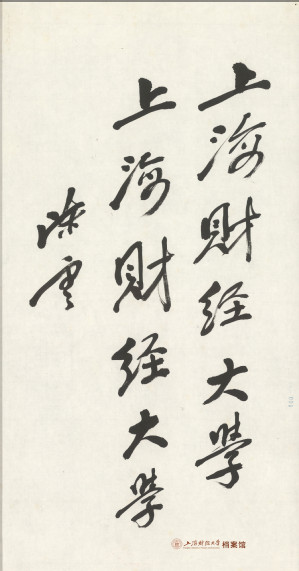 上海财经大学
上海财经大学
陈云
上海财经大学 档案馆